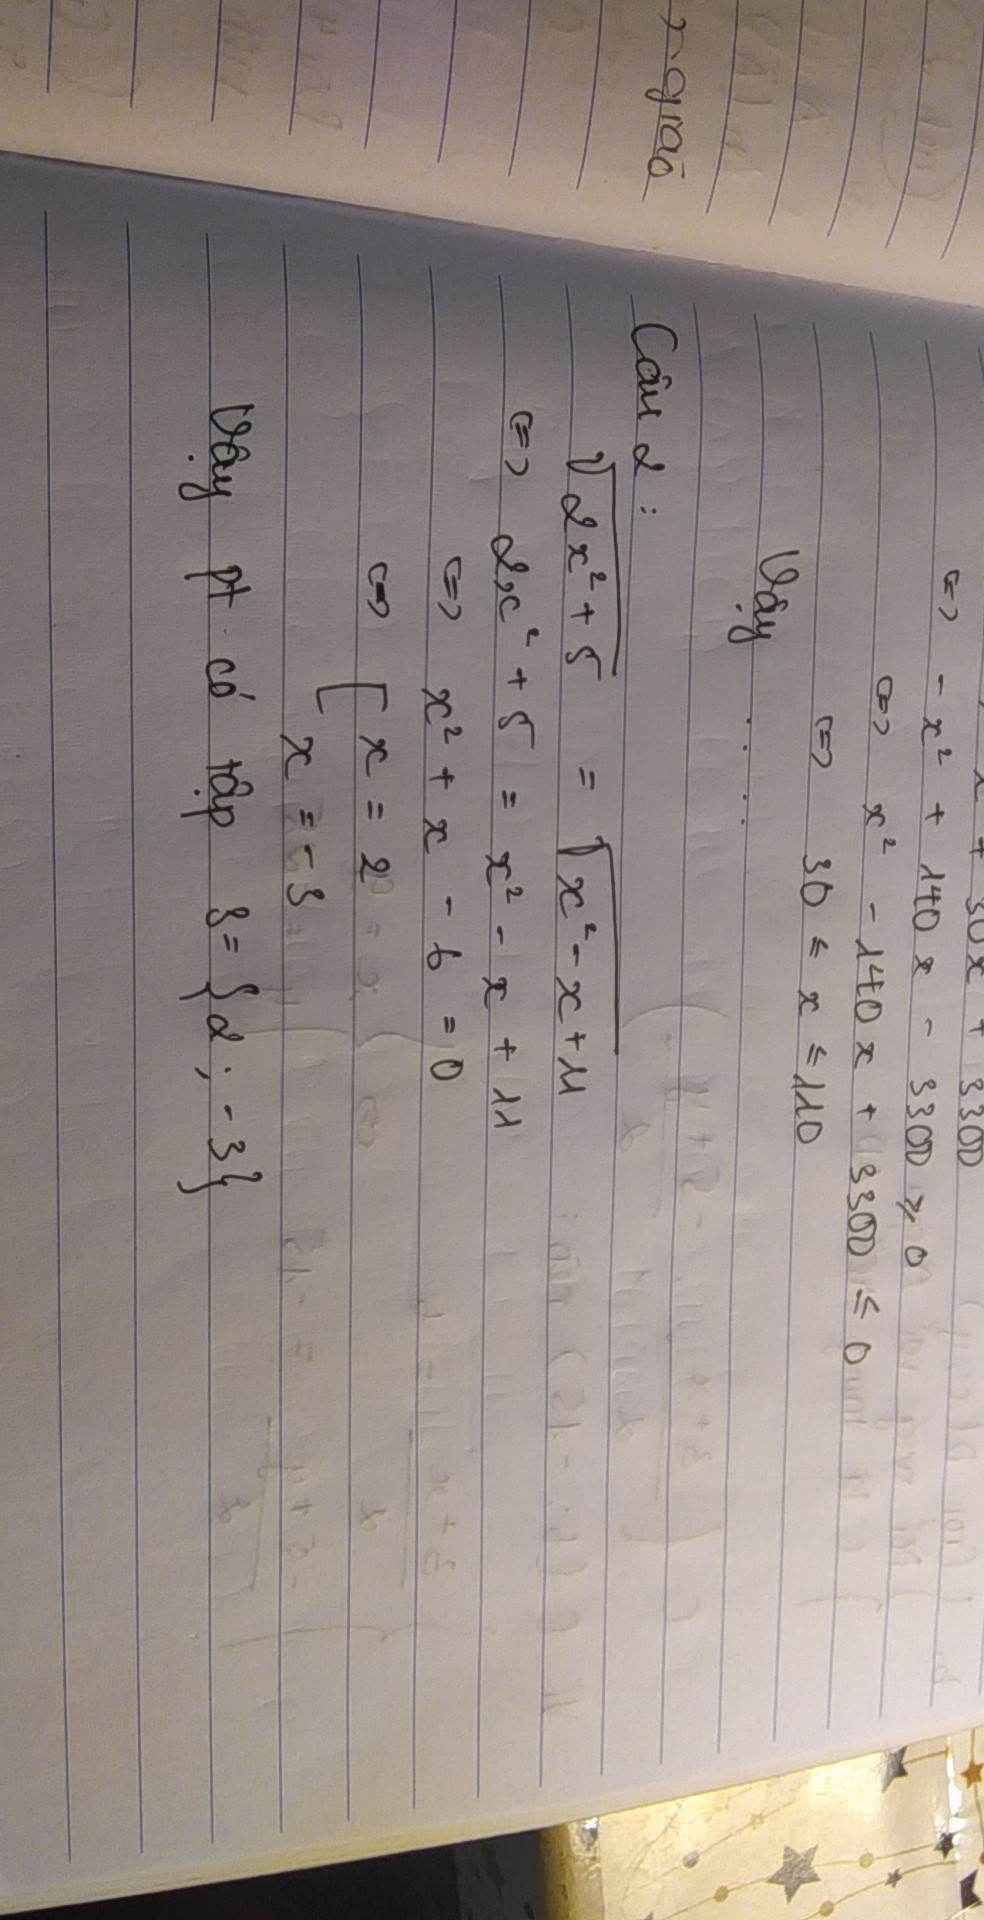 x + 30x + 3300
<=> -x² + 140x - 3300 ≥ 0
<=> x² - 140x + 3300 ≤ 0
<=> 30 ≤ x ≤ 110
Vậy ....
Câu 2 :
√(2x² + 5) = √(x² - x + 11)
<=> 2x² + 5 = x² - x + 11
<=> x² + x - 6 = 0
<=> [ x = 2
x = -3
Vậy pt có tập S = {2 ; -3}